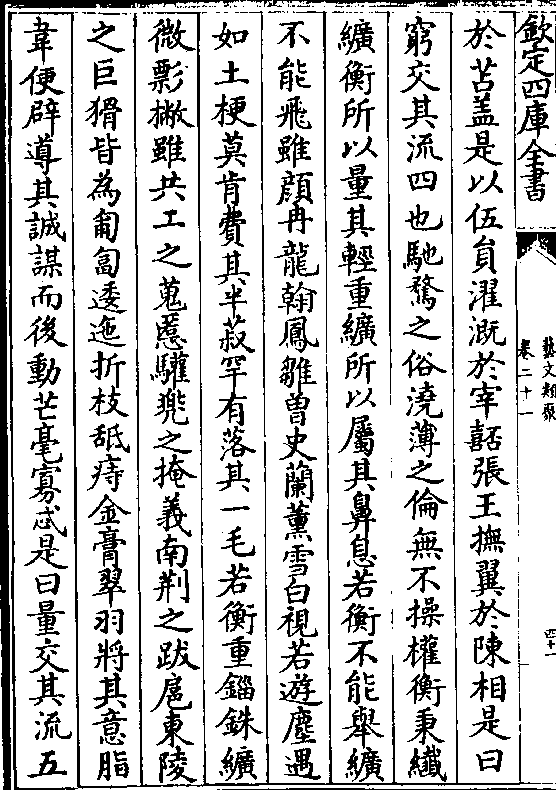 欽定四庫全書
藝文類聚
卷二十一
四十一
於苫蓋是以伍員濯溉於宰嚭張王撫翼於陳相是曰
窮交其流四也馳騖之俗澆薄之倫無不操權衡秉纖
纊衡所以量其輕重纊所以屬其鼻息若衡不能舉纊
不能飛雖顔冉龍翰鳳雛曽史蘭薰雪白視若遊塵遇
如土梗莫肯費其半菽罕有落其一毛若衡重錙銖纊
微影撇雖共工之蒐慝驩兠之掩義南荆之跋扈東陵
之巨猾皆為匍匐逶迤折枝舐痔金膏翠羽將其意脂
韋便辟導其誠謀而後動芒毫寡忒是曰量交其流五